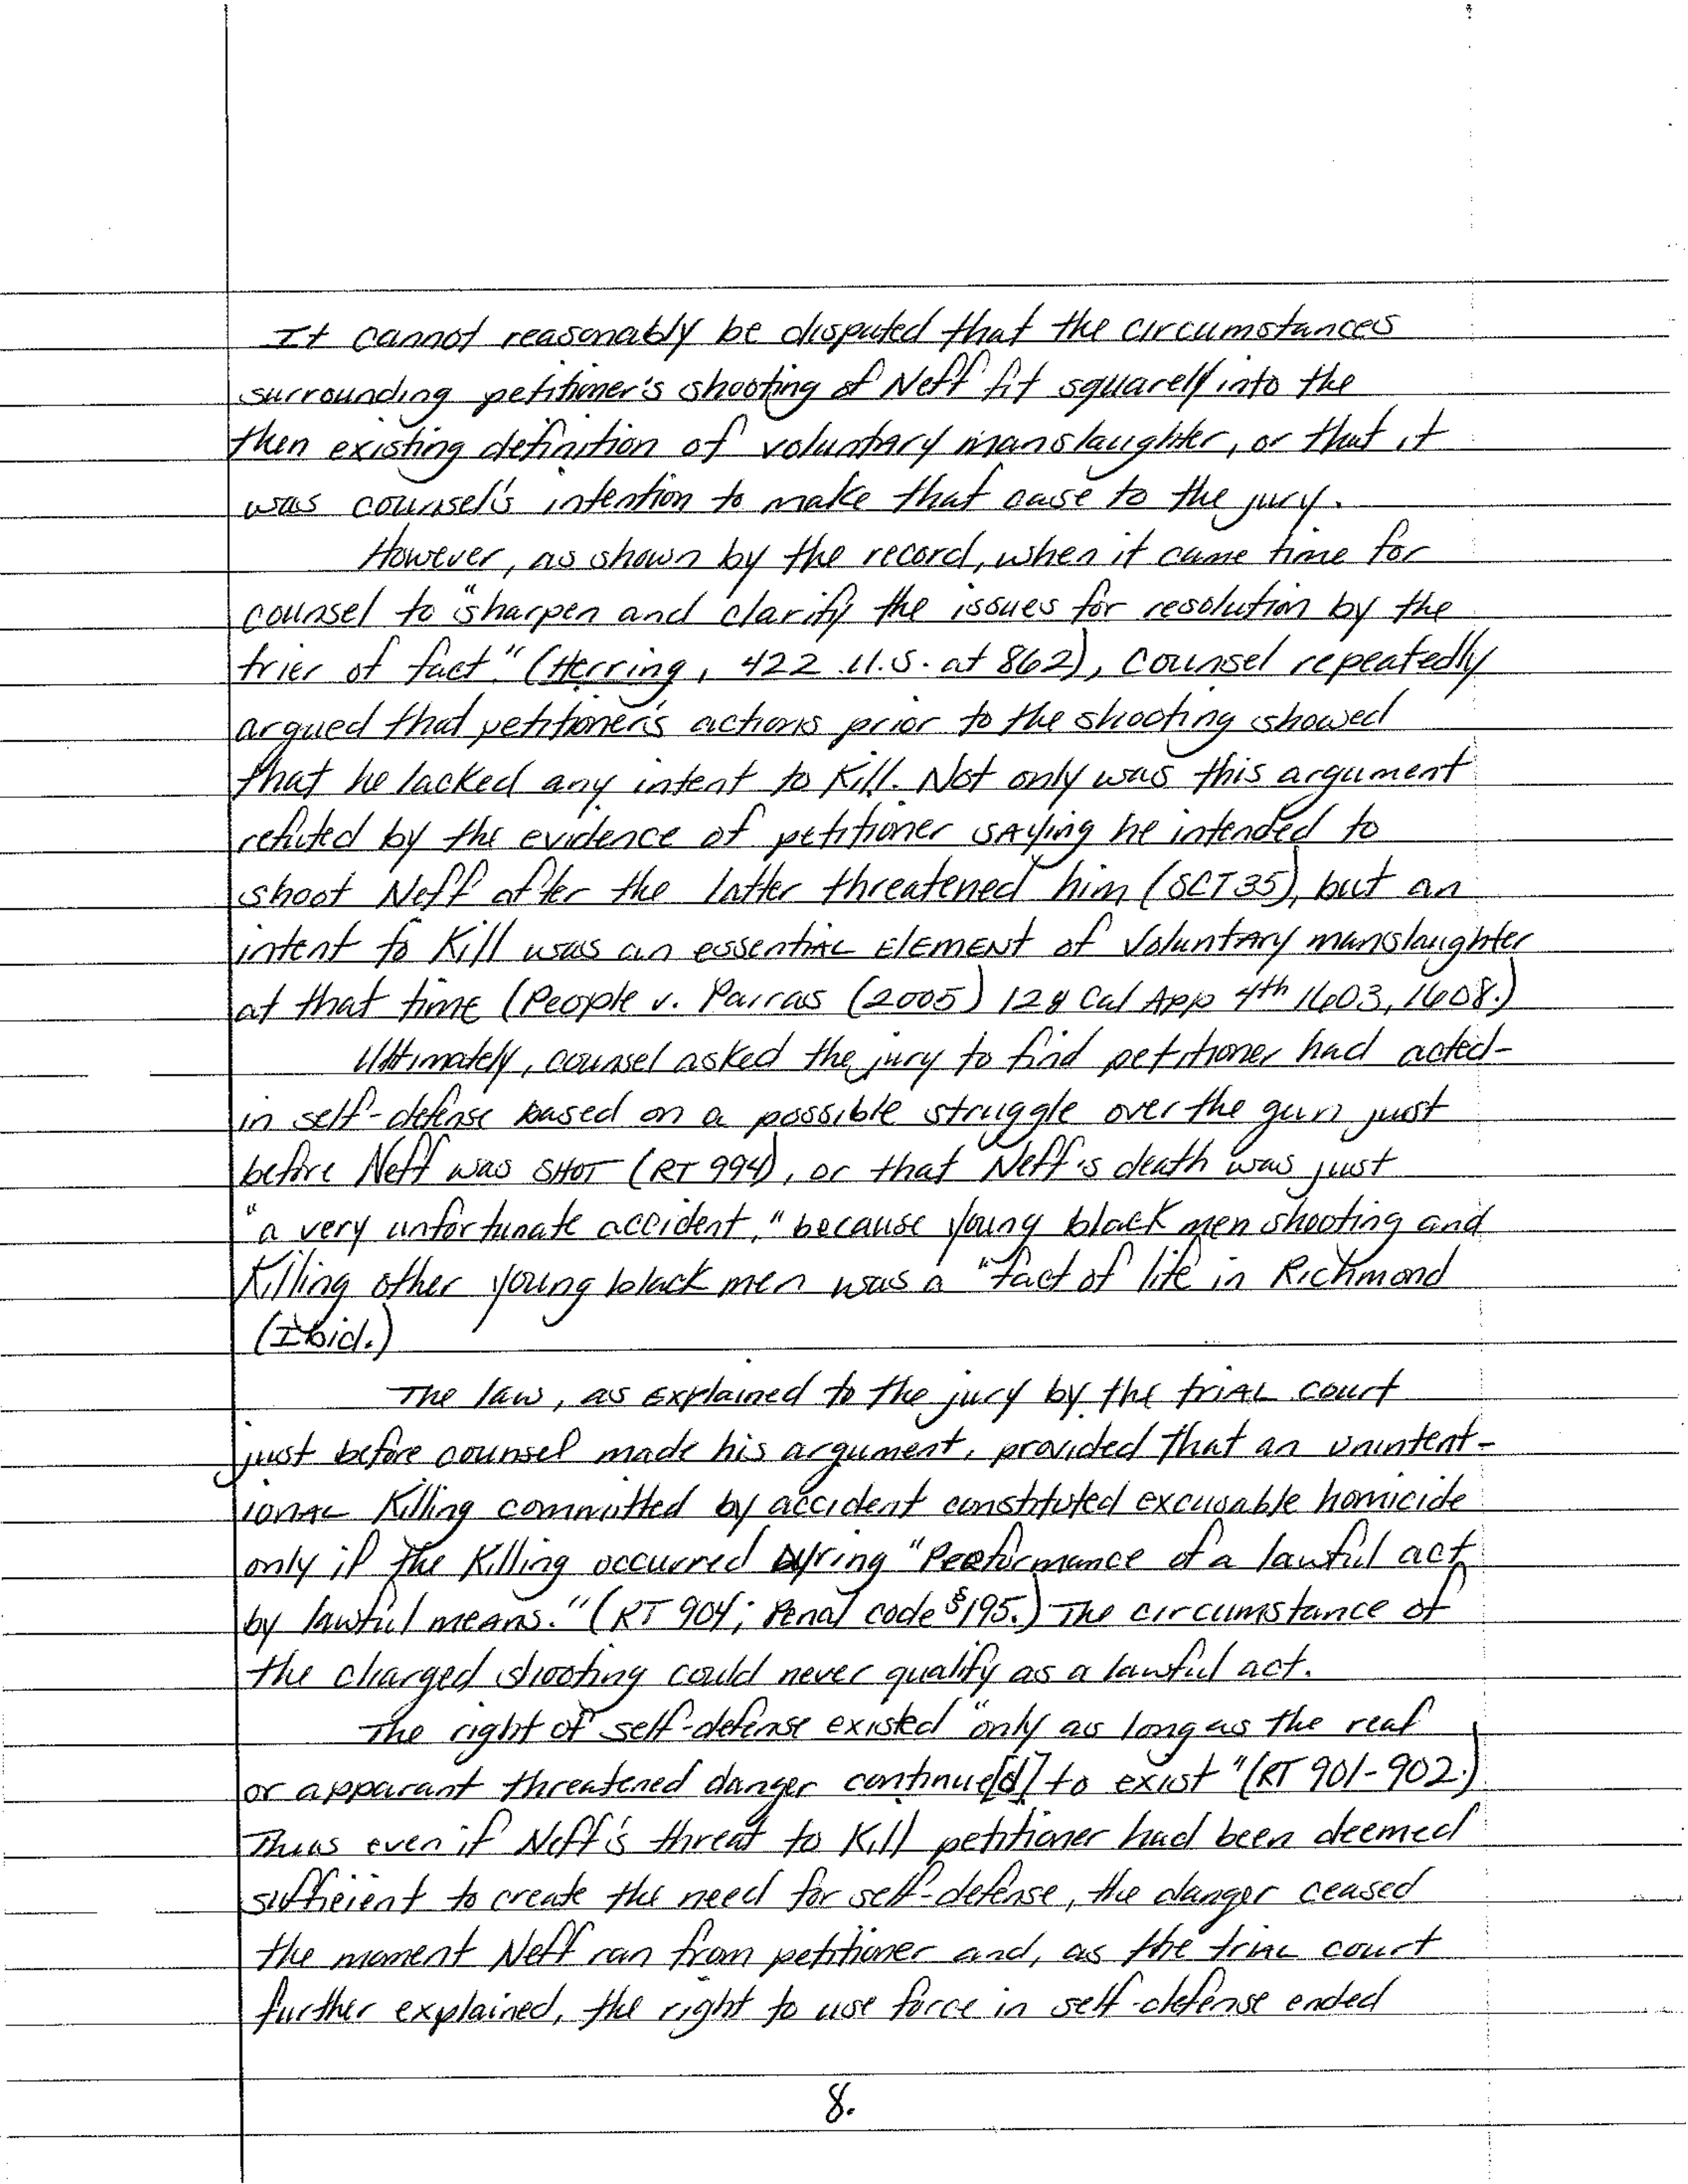 It cannot reasonably be disputed that the circumstances
surrounding petitioner's shooting of Neff fit squarely into the
then existing definition of voluntary manslaughter, or that it
was counsel's intention to make that case to the jury.
However, as shown by the record, when it came time for
counsel to "sharpen and clarify the issues for resolution by the
trier of fact." (Herring, 422 U.S. at 862), counsel repeatedly
argued that petitioner's actions prior to the shooting showed
that he lacked any intent to kill. Not only was this argument
refuted by the evidence of petitioner saying he intended to
shoot Neff after the latter threatened him (SCT 35), but an
intent to kill was an essential element of voluntary manslaughter
at that time (People v. Parras (2005) 128 Cal App 4th 1603, 1608.)
Ultimately, counsel asked the jury to find petitioner had acted-
in self-defense based on a possible struggle over the gun just
before Neff was shot (RT 994), or that Neff's death was just
"a very unfortunate accident," because young black men shooting and
killing other young black men was a "fact of life in Richmond
(Ibid.)
The law, as explained to the jury by the trial court
just before counsel made his argument, provided that an unintent-
ional killing committed by accident constituted excusable homicide
only if the killing occurred during "Performance of a lawful act
by lawful means." (RT 904; Penal code §195.) The circumstance of
the charged shooting could never qualify as a lawful act.
The right of self-defense existed "only as long as the real
or apparant threatened danger continue[d] to exist" (RT 901-902.)
Thus even if Neff's threat to kill petitioner had been deemed
sufficient to create the need for self-defense, the danger ceased
the moment Neff ran from petitioner and, as the trial court
further explained, the right to use force in self-defense ended
8.